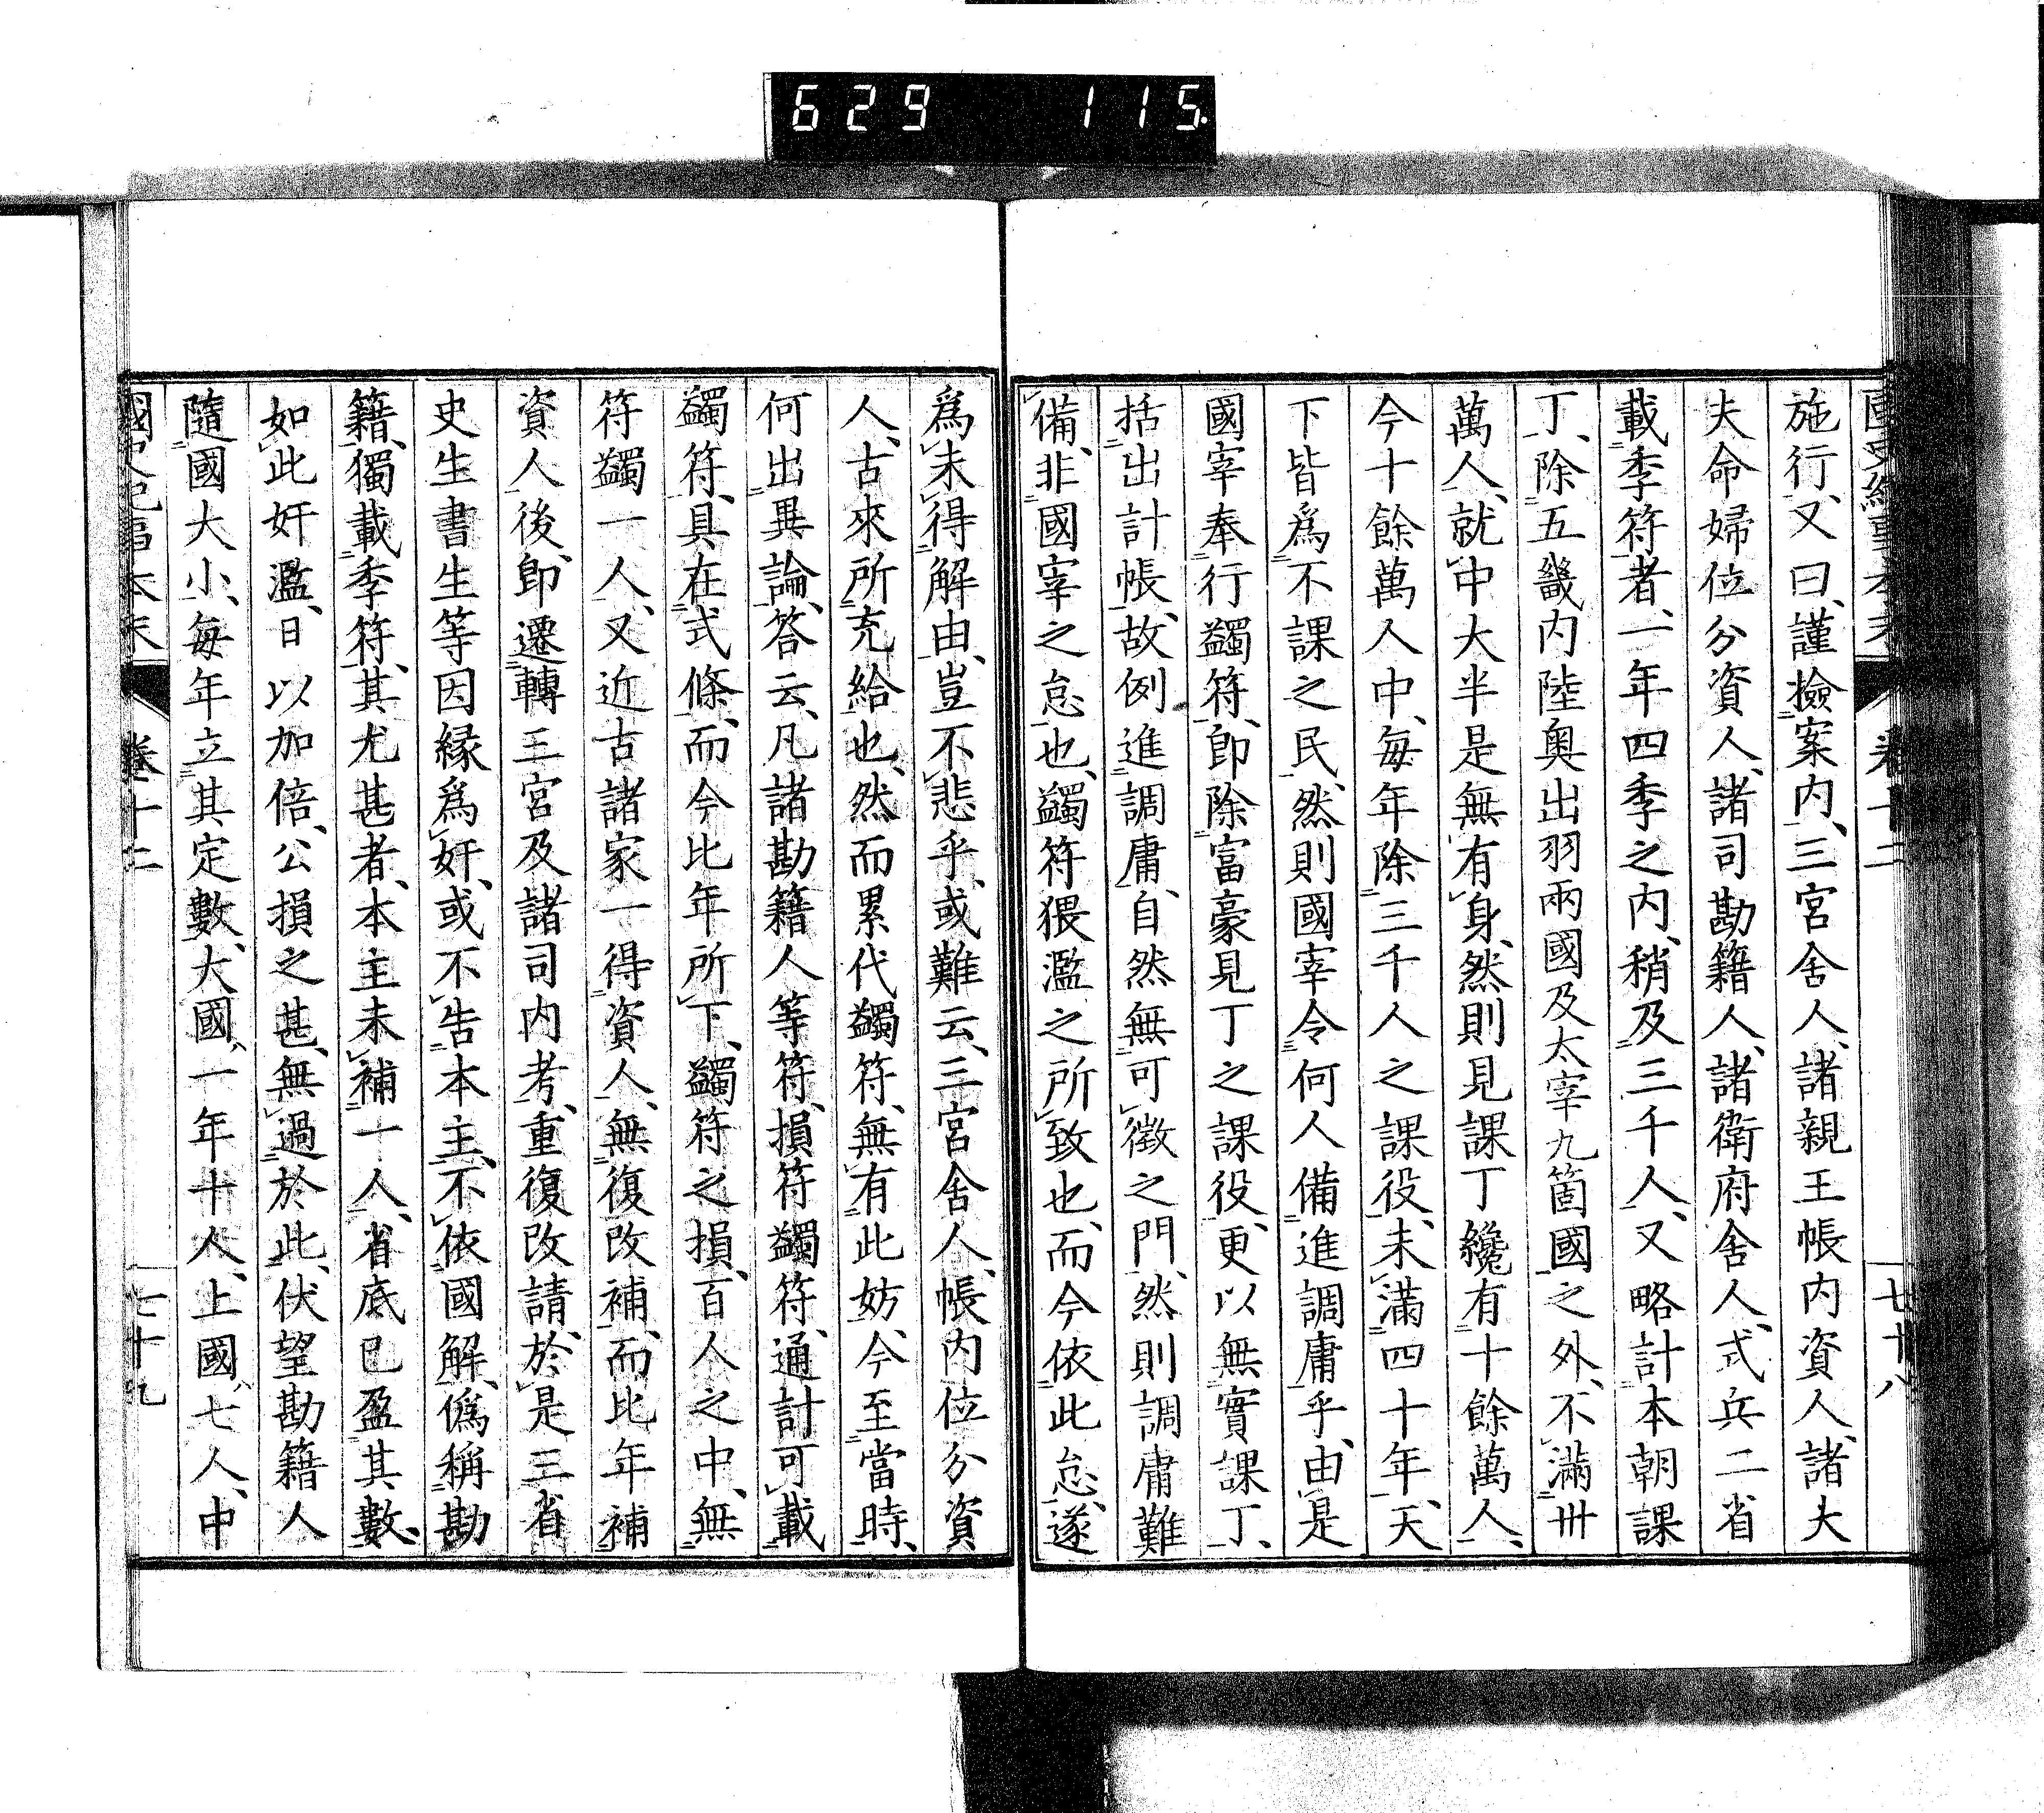 629 115.
施行、又曰、謹撿案内、三宮舍人、諸親王帳内資人、諸大
夫命婦位分資人、諸司勘籍人、諸衛府舍人、式兵二省
載季符者、一年四季之内、稍及三千人、又略計本朝課
丁、除五畿内陸奥出羽兩國及太宰九箇國之外、不滿卅
萬人、就中大半是無有身、然則見課丁纔有十餘萬人、
今十餘萬人中、每年除三千人之課役、未滿四十年、天
下皆爲不課之民、然則國宰令何人備進調庸乎、由是
國宰奉行蠲符、卽除富豪見丁之課役、更以無實課丁、
括出計帳、故例進調庸、自然無可徵之門、然則調庸難
備、非國宰之怠也、蠲符猥濫之所致也、而今依此怠、遂
七十八
爲未得解由、豈不悲乎、或難云、三宮舍人、帳内位分資
人、古來所充給也、然而累代蠲符、無有此妨、今至當時、
何出異論、答云、凡諸勘籍人等符、損符蠲符、通計可載
蠲符、具在式條、而今比年所下、蠲符之損、百人之中、無
符蠲一人、又近古諸家一得資人、無復改補、而比年補
資人後、卽遷轉王宮及諸司内考、重復改請、於是三省
史生書生等因緣爲奸、或不告本主、不依國解、僞稱勘
籍、獨載季符、其尤甚者、本主未補一人、省底已盈其數、
如此奸濫、日以加倍、公損之甚、無過於此、伏望勘籍人
隨國大小、每年立其定數、大國、一年十人、上國、七人、中
國史紀事本末 卷十二 七十九